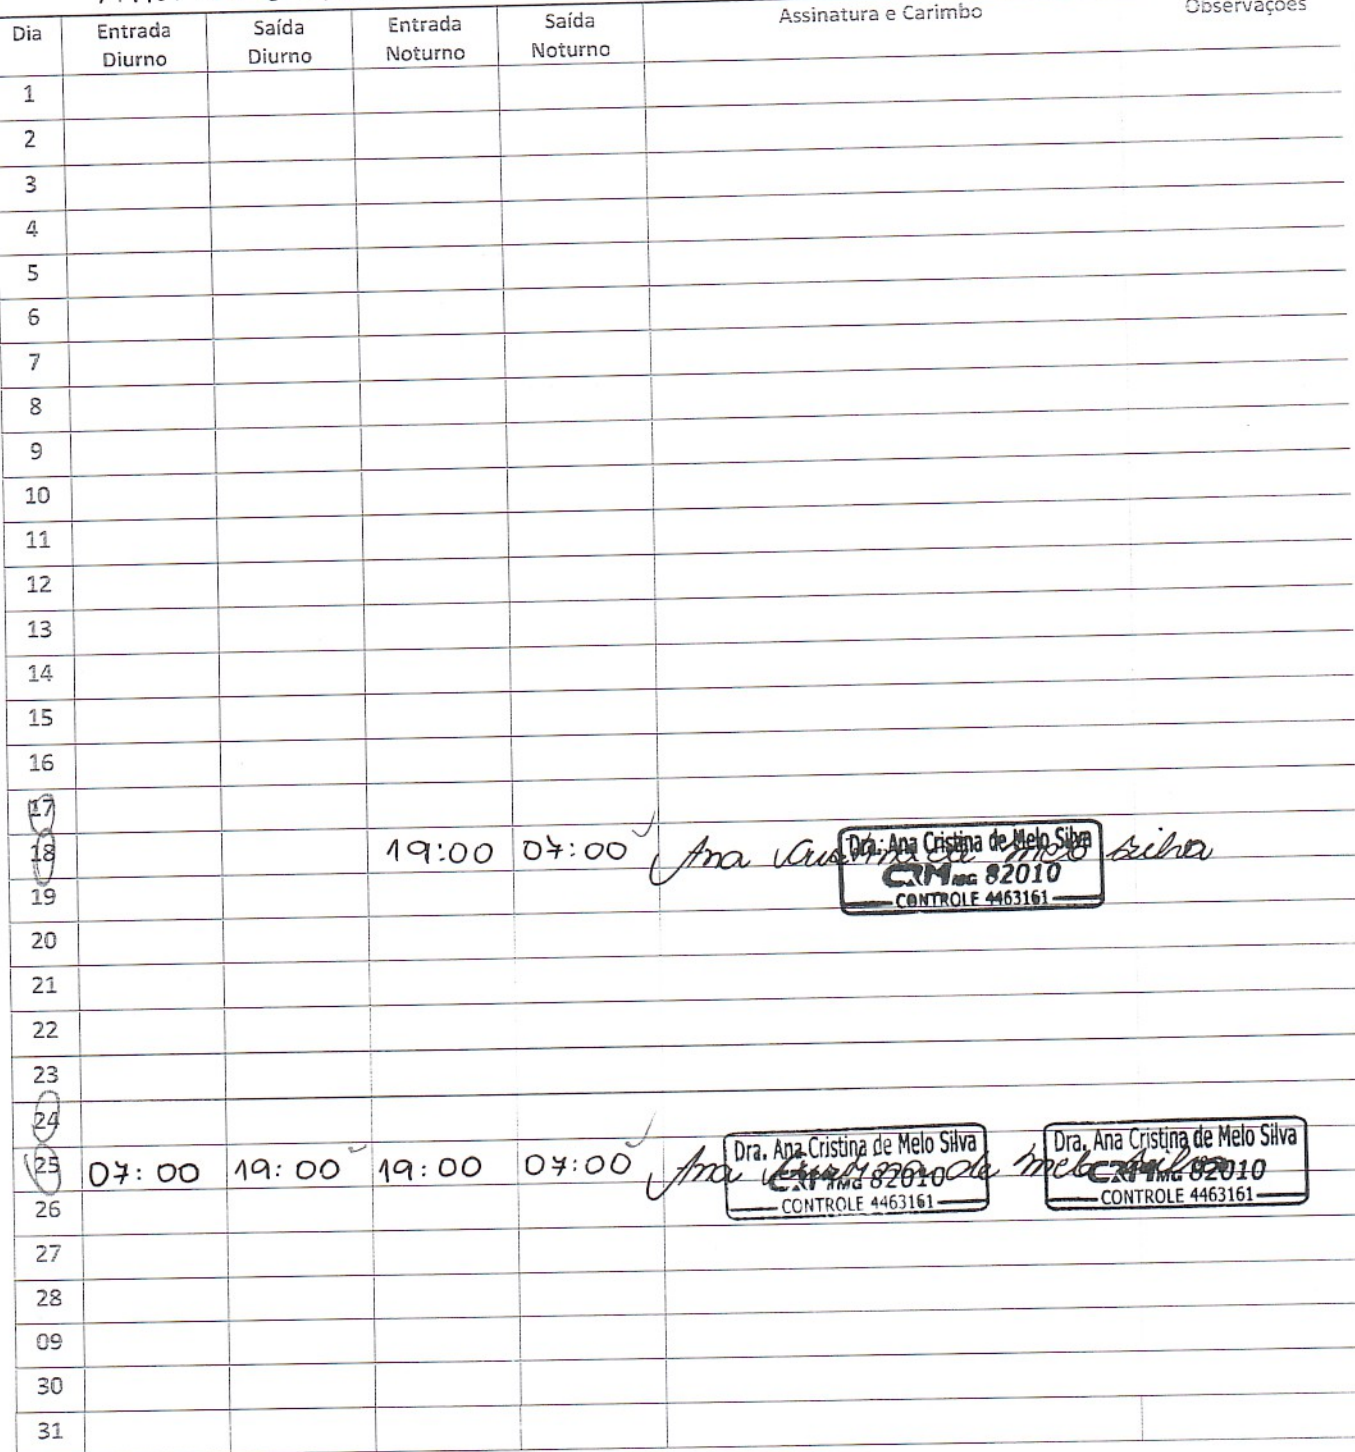 Dia Entrada Diurno Saída Diurno Entrada Noturno Saída Noturno Assinatura e Carimbo Observações
1
2
3
4
5
6
7
8
9
10
11
12
13
14
15
16
17
18 19:00 07:00 Ana Cristina de Melo Silva
Dra. Ana Cristina de Melo Silva
CRM MG 82010
CONTROLE 4463161
19
20
21
22
23
24
25 07:00 19:00 19:00 07:00 Ana Cristina de Melo Silva
Dra. Ana Cristina de Melo Silva
CRM MG 82010
CONTROLE 4463161
Dra. Ana Cristina de Melo Silva
CRM MG 82010
CONTROLE 4463161
26
27
28
09
30
31